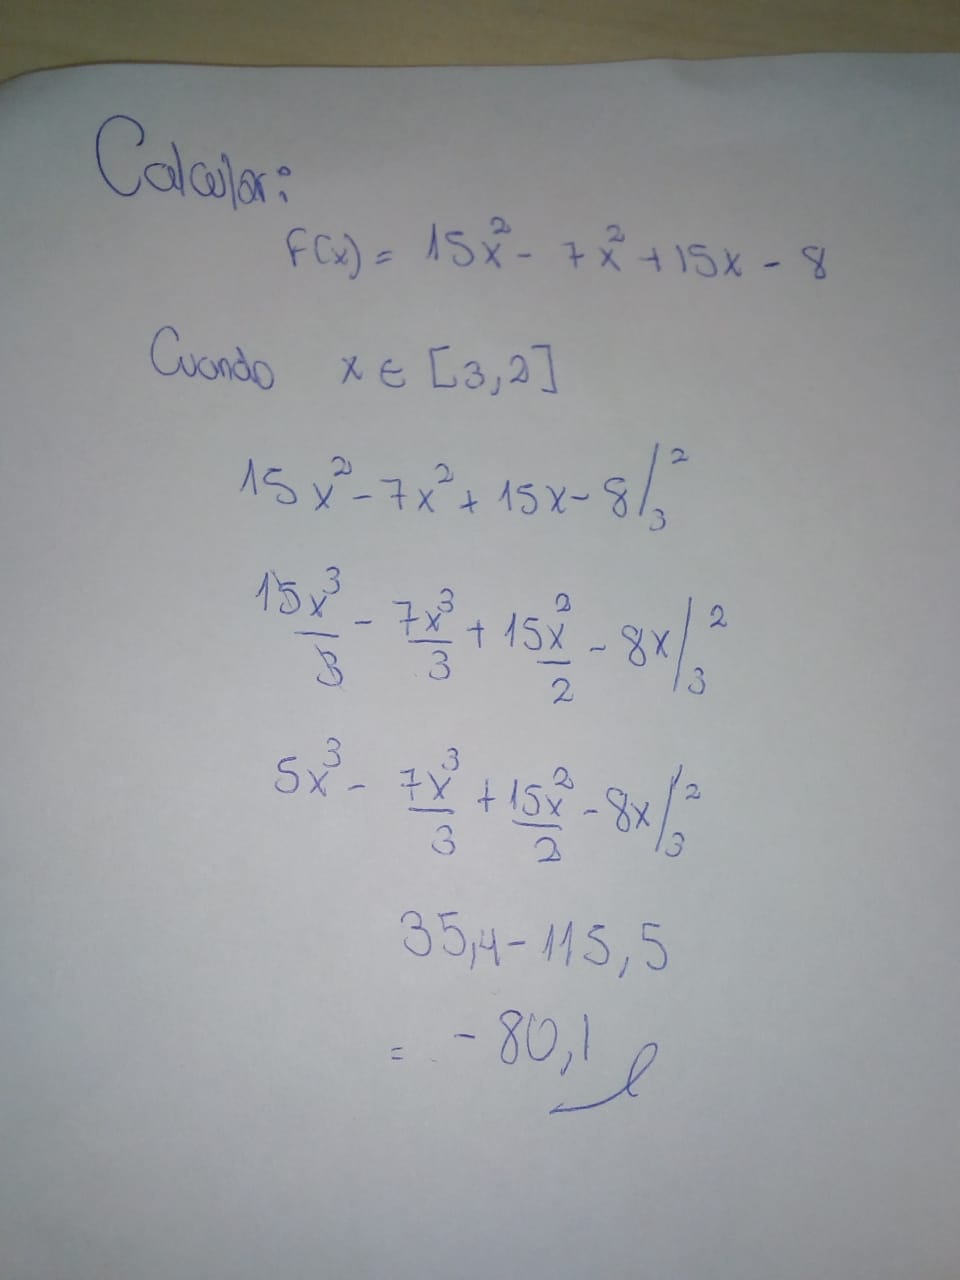 Calcular:
F(x) = 15x² - 7x² + 15x - 8
Cuando x ∈ [3,2]
15x² - 7x² + 15x - 8 /₃²
15x³/3 - 7x³/3 + 15x²/2 - 8x /₃²
5x³ - 7x³/3 + 15x²/2 - 8x /₃²
35,4 - 115,5
= -80,1